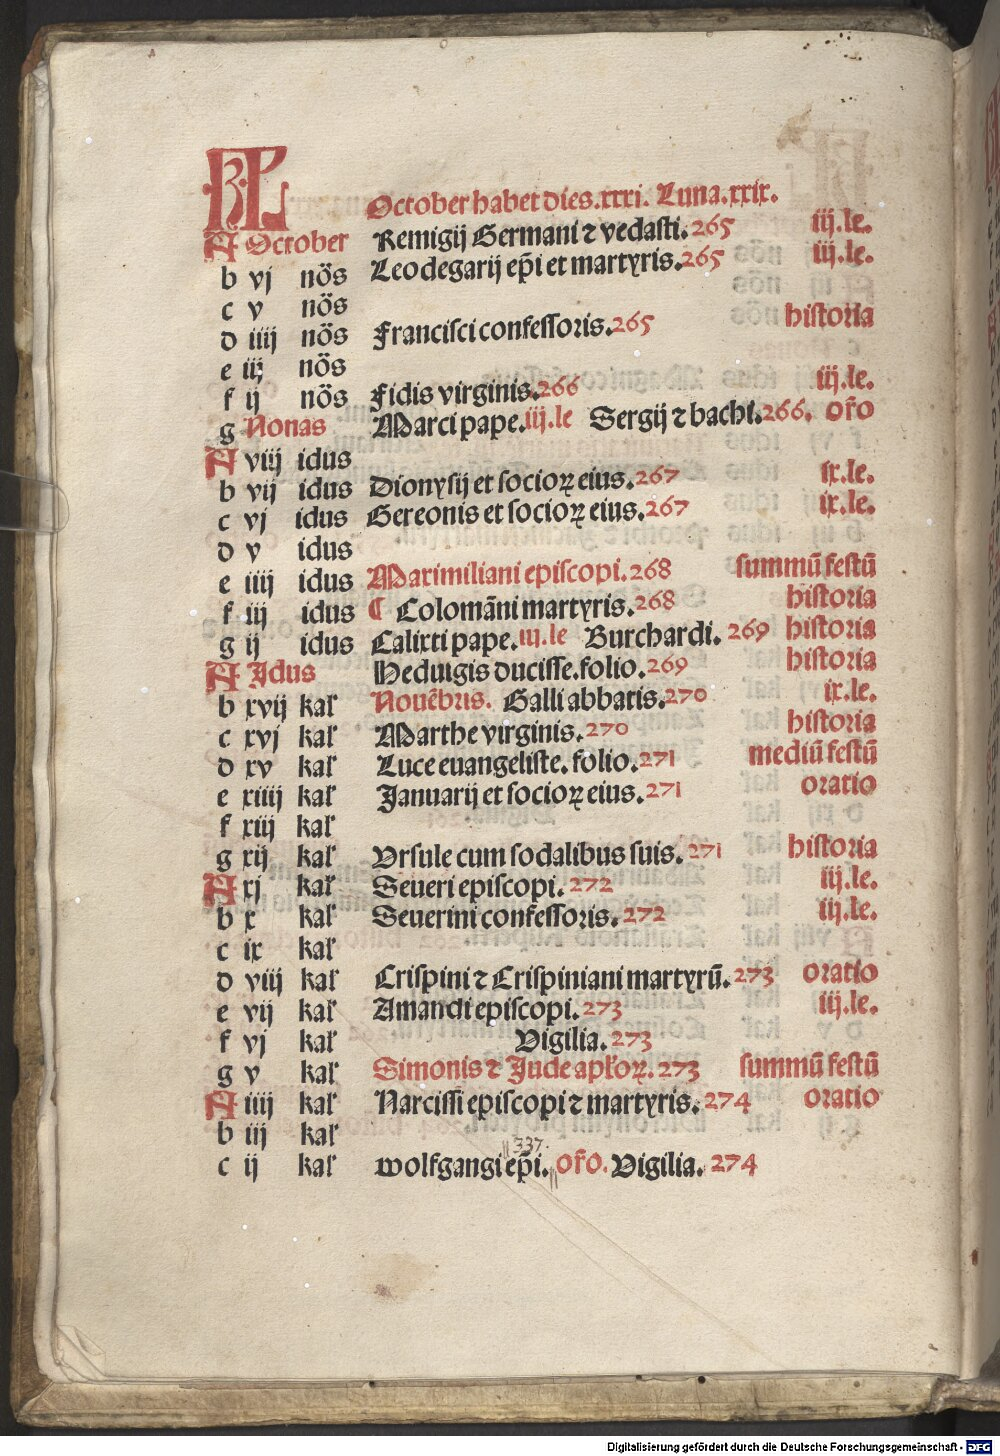 KL October habet dies.xxxi. Luna.xxix.
A October Remigij Germani ⁊ vedasti. 265 iij.le.
b vj nōs Leodegarij ep̄i et martyris. 265 iij.le.
c v nōs
d iiij nōs Francisci confessoris. 265 historia
e iij nōs
f ij nōs Fidis virginis. 266 iij.le.
g Nonas Marci pape. iij.le Sergij ⁊ bachi. 266. or̄o
A viij idus
b vij idus Dionysij et socioꝝ eius. 267 ix.le.
c vj idus Gereonis et socioꝝ eius. 267 ix.le.
d v idus
e iiij idus Maximiliani episcopi. 268 summū festū
f iij idus ¶ Colomāni martyris. 268 historia
g ij idus Calixti pape. iij.le Burchardi. 269 historia
A Idus Heduigis ducisse. folio. 269 historia
b xvij kal̄ Nouēbris. Galli abbatis. 270 ix.le.
c xvj kal̄ Marthe virginis. 270 historia
d xv kal̄ Luce euangeliste. folio. 271 mediū festū
e xiiij kal̄ Januarij et socioꝝ eius. 271 oratio
f xiij kal̄
g xij kal̄ Vrsule cum sodalibus suis. 271 historia
A xj kal̄ Seueri episcopi. 272 iij.le.
b x kal̄ Seuerini confessoris. 272 iij.le.
c ix kal̄
d viij kal̄ Crispini ⁊ Crispiniani martyrū. 273 oratio
e vij kal̄ Amandi episcopi. 273 iij.le.
f vj kal̄ Vigilia. 273
g v kal̄ Simonis ⁊ Jude apl̄oꝝ. 273 summū festū
A iiij kal̄ Narcissi episcopi ⁊ martyris. 274 oratio
b iij kal̄
337.
c ij kal̄ wolfgangi ep̄i. or̄o. Vigilia. 274
Digitalisierung gefördert durch die Deutsche Forschungsgemeinschaft - DFG